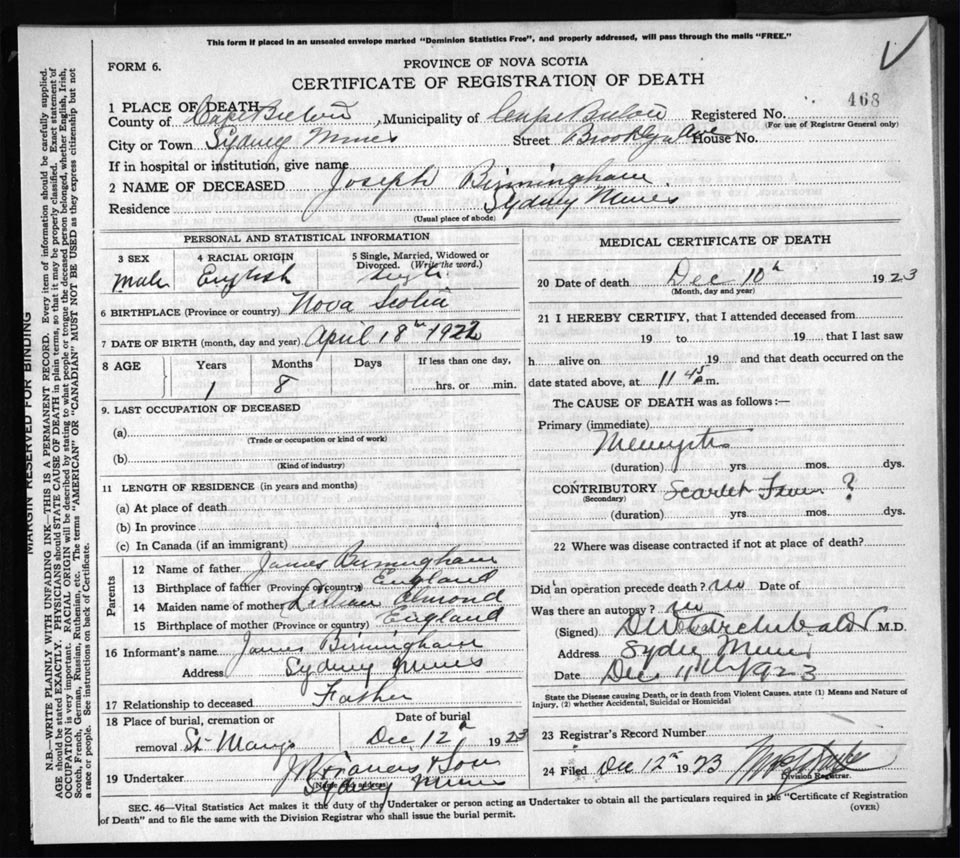 This form if placed in an unsealed envelope marked "Dominion Statistics Free", and properly addressed, will pass through the mails "FREE."
FORM 6.
PROVINCE OF NOVA SCOTIA
CERTIFICATE OF REGISTRATION OF DEATH
468
1 PLACE OF DEATH
County of Cape Breton, Municipality of Cape Breton Registered No.
(For use of Registrar General only)
City or Town Sydney Mines Street Brooklyn Ave House No.
If in hospital or institution, give name
2 NAME OF DECEASED Joseph Birmingham
Residence Sydney Mines
(Usual place of abode)
PERSONAL AND STATISTICAL INFORMATION
3 SEX Male
4 RACIAL ORIGIN English
5 Single, Married, Widowed or Divorced. (Write the word.) Single
6 BIRTHPLACE (Province or country) Nova Scotia
7 DATE OF BIRTH (month, day and year) April 18th 1922
8 AGE Years Months Days If less than one day,
1 8 hrs. or min.
9. LAST OCCUPATION OF DECEASED
(a)
(Trade or occupation or kind of work)
(b)
(Kind of industry)
11 LENGTH OF RESIDENCE (in years and months)
(a) At place of death
(b) In province
(c) In Canada (if an immigrant)
Parents
12 Name of father James Birmingham
13 Birthplace of father (Province or country) England
14 Maiden name of mother Lillian Almond
15 Birthplace of mother (Province or country) England
16 Informant's name James Birmingham
Address Sydney Mines
17 Relationship to deceased Father
18 Place of burial, cremation or removal St Marys
Date of burial
Dec 12th 1923
19 Undertaker J Francis & Son
(Name and address)
Sydney Mines
MEDICAL CERTIFICATE OF DEATH
20 Date of death Dec 10th 1923
(Month, day and year)
21 I HEREBY CERTIFY, that I attended deceased from
19 to 19 that I last saw
h alive on 19 and that death occurred on the
date stated above, at 11 45 P.m.
The CAUSE OF DEATH was as follows:—
Primary (immediate)
(duration) yrs. mos. dys.
CONTRIBUTORY Scarlet Fever ?
(Secondary)
(duration) yrs. mos. dys.
22 Where was disease contracted if not at place of death?
Did an operation precede death? no Date of
Was there an autopsy? no
(Signed) Archibald M.D.
Address Sydney Mines
Date Dec 11th 1923
State the Disease causing Death, or in death from Violent Causes, state (1) Means and Nature of Injury, (2) whether Accidental, Suicidal or Homicidal
23 Registrar's Record Number
24 Filed Dec 12th 1923
Division Registrar.
SEC. 46—Vital Statistics Act makes it the duty of the Undertaker or person acting as Undertaker to obtain all the particulars required in the "Certificate of Registration
of Death" and to file the same with the Division Registrar who shall issue the burial permit.
(OVER)
MARGIN RESERVED FOR BINDING
N.B.—WRITE PLAINLY WITH UNFADING INK—THIS IS A PERMANENT RECORD. Every item of information should be carefully supplied.
AGE should be stated EXACTLY. PHYSICIANS should STATE CAUSE OF DEATH in plain terms, so that it may be properly classified. Exact statement of
OCCUPATION is very important. RACIAL ORIGIN will be described by stating to what people or tongue the deceased person belonged, whether English, Irish,
Scotch, French, German, Russian, Ruthenian, etc. The terms "AMERICAN" or "CANADIAN" MUST NOT BE USED as they express citizenship but not
a race or people. See instructions on back of Certificate.